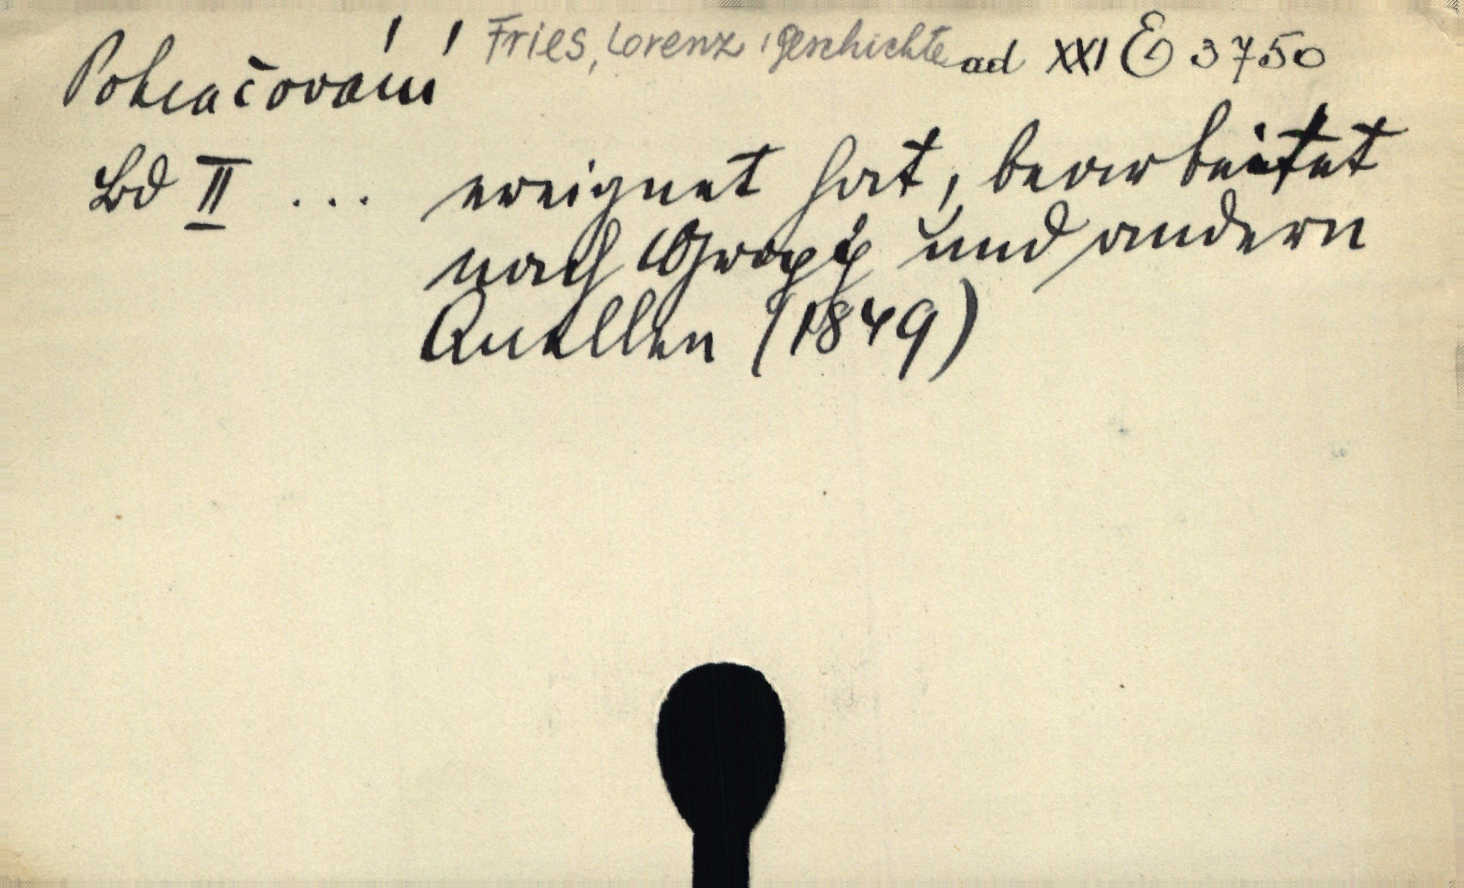 Pokračování Fries, Lorenz: Geschichte ad XXI E 3750
Bd II ... ereignet hat, bearbeitet
nach Gropp und andern
Quellen (1849)